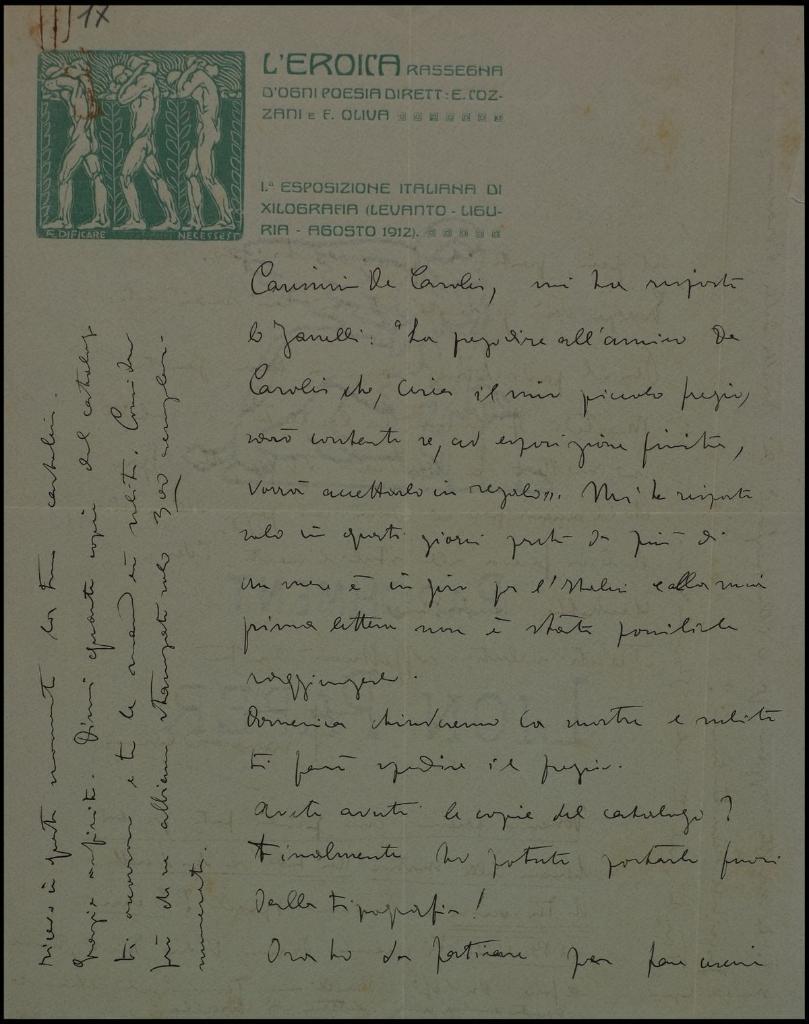 17
L'EROICA RASSEGNA
D'OGNI POESIA DIRETT: E. COZ-
ZANI E F. OLIVA
I.ª ESPOSIZIONE ITALIANA DI
XILOGRAFIA (LEVANTO - LIGU-
RIA - AGOSTO 1912).
ÆDIFICARE NECESSE EST
Carissimo De Carolis, mi ha risposto
lo Zanelli: "La prego dire all'amico De
Carolis che, circa il mio piccolo fregio,
sarò contento se, ad esposizione finita,
vorrà accettarlo in regalo". Mi ha risposto
solo in questi giorni perché da più di
un mese è in giro per l'Italia e alla mia
prima lettera non è stato possibile
raggiungerlo.
Domenica chiuderemo la mostra e subito
ti farò spedire il fregio.
Avete avuto le copie del catalogo?
Finalmente ho potuto portarle fuori
dalla tipografia!
Ora ho da faticare per fare uscire
Ricevo in questo momento la tua cartolina.
Grazie infinite. Dimmi quante copie del catalogo
ti occorrono e te le manderò subito. Considera
però che ne abbiamo stampate solo 300 esempla-
numerati.